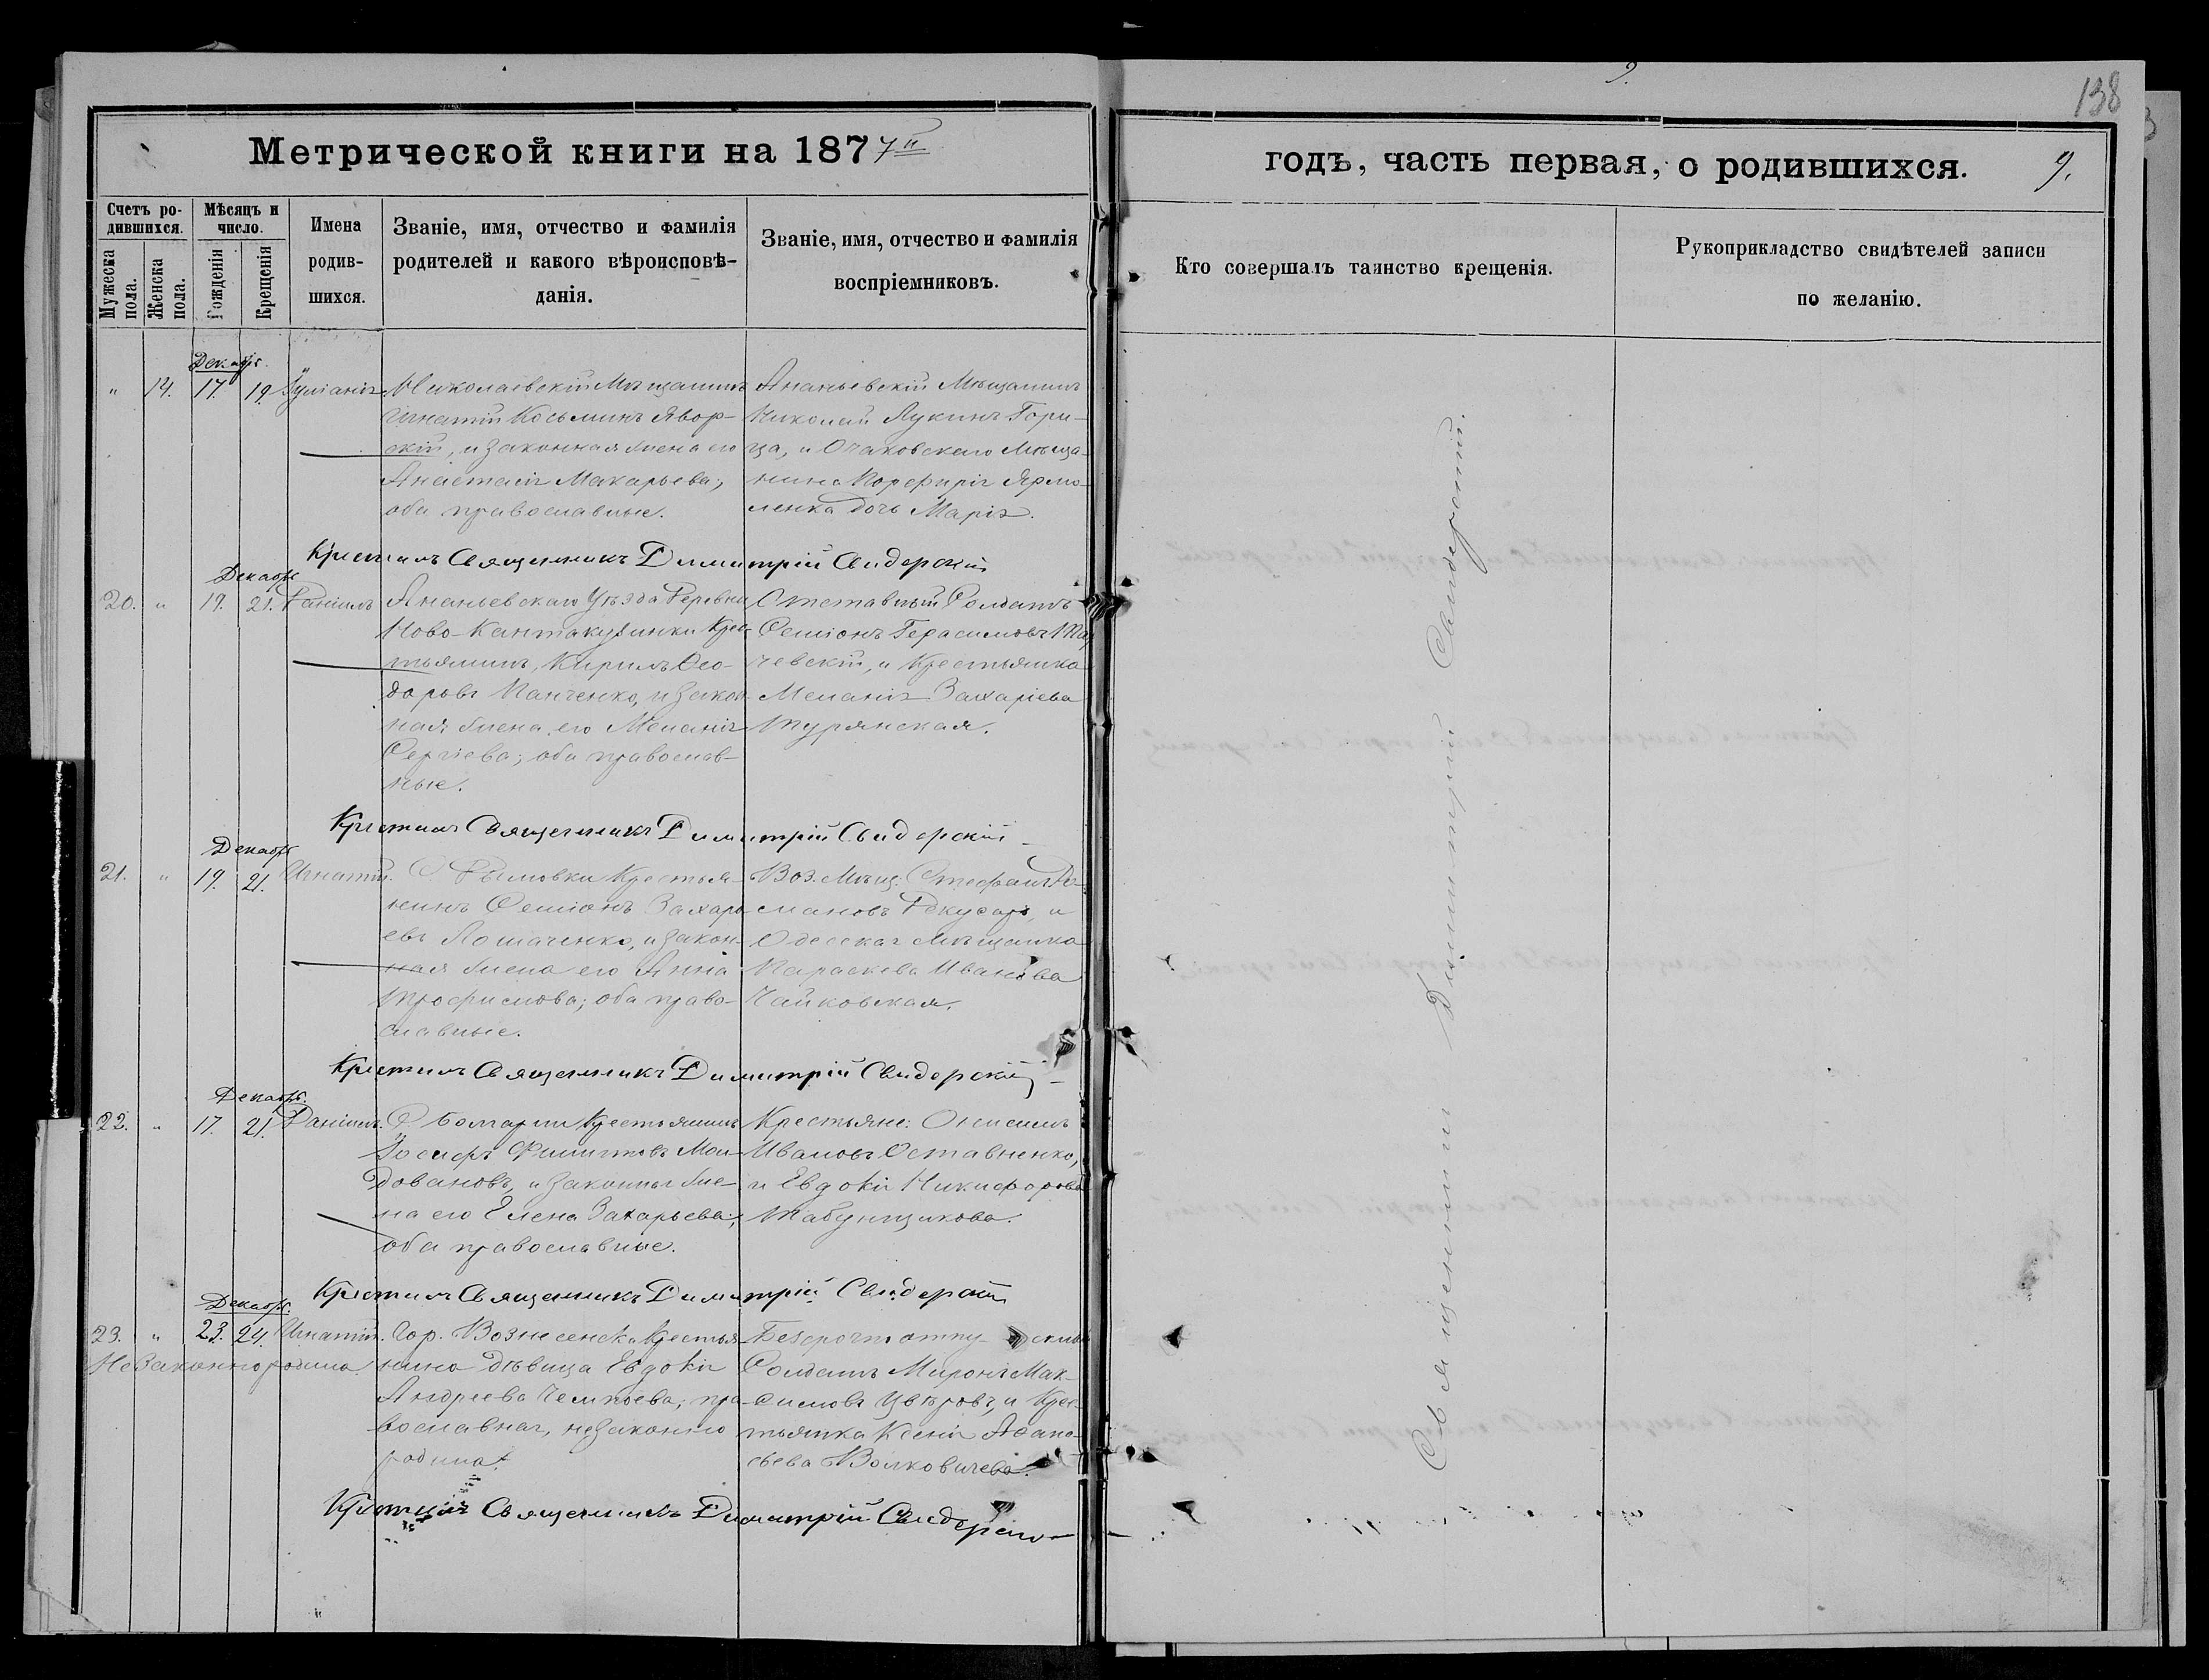 9.
138
Метрической книги на 1877й
годъ, часть первая, о родившихся.
9.
Счетъ родившихся.
Мужеска пола.
Женска пола.
Мѣсяцъ и число.
Рожденія
Крещенія
Имена родившихся.
Званіе, имя, отчество и фамилія
родителей и какого вѣроисповѣ-
данія.
Званіе, имя, отчество и фамилія
воспріемниковъ.
Кто совершалъ таинство крещенія.
Рукоприкладство свидѣтелей записи
по желанію.
Декабр.
" 14. 17. 19. Іуліанія
Николаевскій Мѣщанинъ
Игнатій Косьминъ Явор-
скій, и законная жена его
Анастасія Макарьева;
оба православные.
Ананьевскій Мѣщанинъ
Николай Лукинъ Гори-
ца, и Очаковскаго Мѣща-
нина Порфирія Ярмо-
ленка дочь Марія.
Крестилъ Священникъ Димитрій Свидерскій
Декабр
20. " 19. 21. Даніилъ
Ананьевскаго Уѣзда Деревни
Ново-Кантакузинки Крес-
тьянинъ, Кирилъ Ѳео-
доровъ Панченко, и закон-
ная жена его Меланія
Сергіева; оба православ-
ные.
Отставный Солдатъ
Семіонъ Герасимовъ
чевскій, и Крестьянка
Меланія Захаріева
Турянская.
Крестилъ Священникъ Димитрій Свидерскій
Декабр
21. " 19. 21. Игнатій.
С. Дымовки Крестья-
нинъ Семіонъ Захарь-
евъ Лошаченко, и закон-
ная жена его Анна
Трофимова; оба право-
славные.
Воз. Мѣщ. Стефанъ Ро-
мановъ и
Одесская Мѣщанка
Параскева Иванова
Чайковская.
Крестилъ Священникъ Димитрій Свидерскій
Декабр.
22. " 17. 21. Даніилъ.
С. Болгарки Крестьянинъ
Іосифъ Филиповъ Мол-
довановъ, и законная же-
на его Елена Захарьева;
оба православные.
Крестьяне: Онисимъ
Ивановъ Оставненко,
и Евдокія Никифорова
Табунщикова.
Крестилъ Священникъ Димитрій Свидерскій
Декабр.
23. " 23. 24. Игнатій.
Незаконнорожденъ
Гор. Вознесенска Крестья-
нина дѣвица Евдокія
Андреева пра-
вославная, незаконно
родила.
Безсрочно отпу-
Солдатъ Миронъ Мак-
симовъ и Крес-
тьянка Ксенія Аѳана-
сьева Волковичева.
Крестилъ Священникъ Димитрій Свидерскій
Священникъ Димитрій Свидерскій.